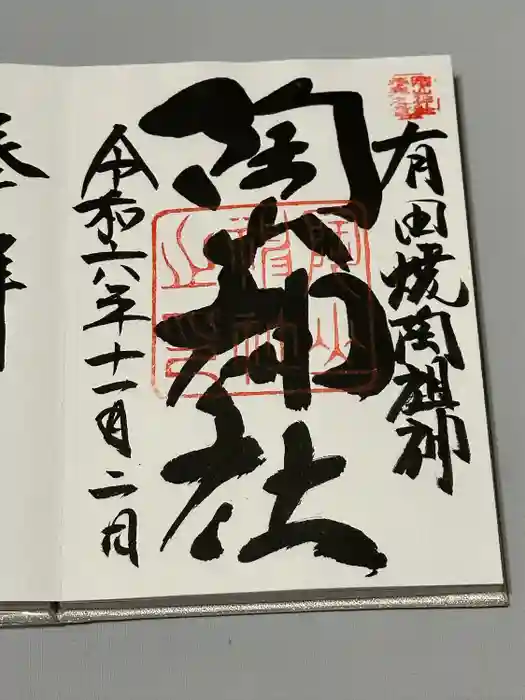 有田焼陶祖神
陶山神社
令和六年十一月二日
奉拝